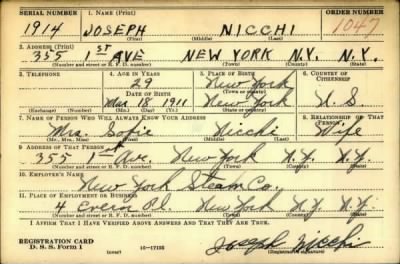 SERIAL NUMBER 1. NAME (Print) ORDER NUMBER
1914 JOSEPH NICCHI 1047
(First) (Middle) (Last)
2. ADDRESS (Print)
355 1ST AVE NEW YORK N.Y. N.Y.
(Number and street or R. F. D. number) (Town) (County) (State)
3. TELEPHONE 4. AGE IN YEARS 5. PLACE OF BIRTH 6. COUNTRY OF CITIZENSHIP
29 New York
DATE OF BIRTH (Town or county)
Mar 18 1911 New York U. S.
(Exchange) (Number) (Mo.) (Day) (Yr.) (State or country)
7. NAME OF PERSON WHO WILL ALWAYS KNOW YOUR ADDRESS 8. RELATIONSHIP OF THAT PERSON
Mrs. Sofie Nicchi Wife
(Mr., Mrs., Miss) (First) (Middle) (Last)
9. ADDRESS OF THAT PERSON
355 1st Ave. New York N.Y. N.Y.
(Number and street or R. F. D. number) (Town) (County) (State)
10. EMPLOYER'S NAME
New York Steam Co.
11. PLACE OF EMPLOYMENT OR BUSINESS
4 Pl. New York N.Y. N.Y.
(Number and street or R. F. D. number) (Town) (County) (State)
I AFFIRM THAT I HAVE VERIFIED ABOVE ANSWERS AND THAT THEY ARE TRUE.
REGISTRATION CARD
D. S. S. Form 1 (over) 16-17105 Joseph Nicchi
(Registrant's signature)